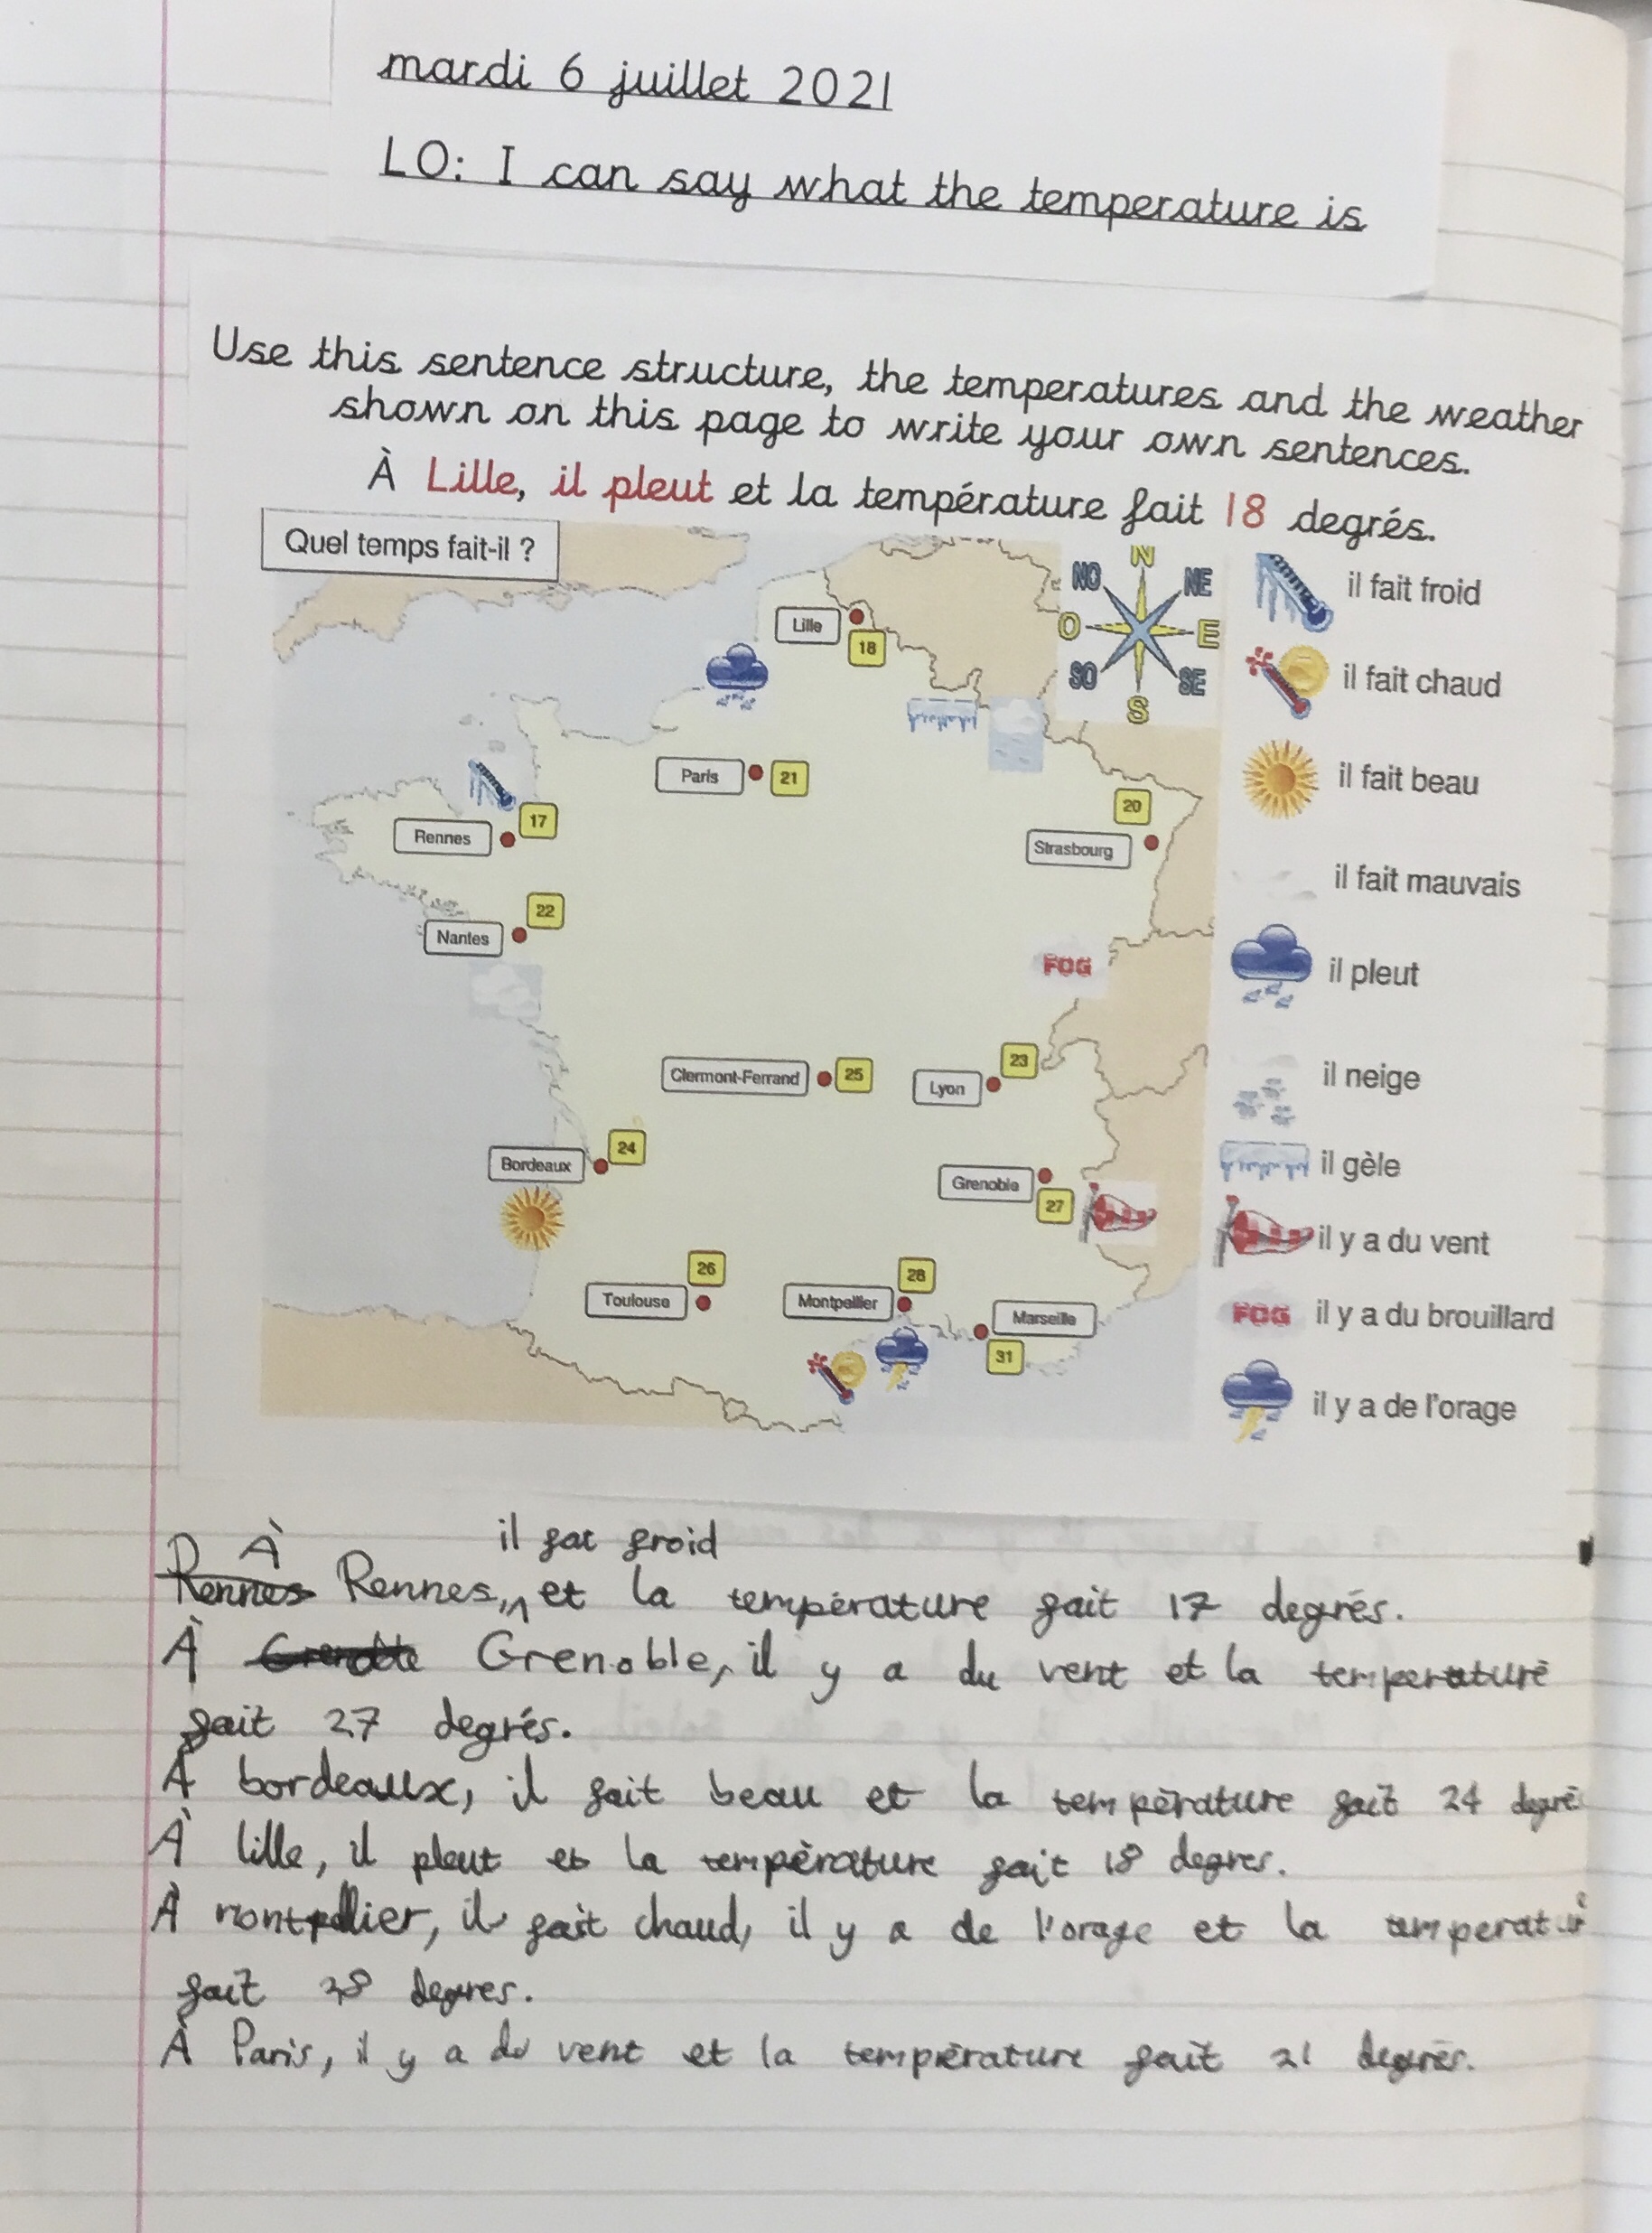 mardi 6 juillet 2021
LO: I can say what the temperature is
Use this sentence structure, the temperatures and the weather
shown on this page to write your own sentences.
À Lille, il pleut et la température fait 18 degrés.
Quel temps fait-il ?
N
NO NE
O E
SO SE
S
Lille
18
Paris 21
Rennes
17
20
Strasbourg
22
Nantes
FOG
Clermont-Ferrand 25
23
Lyon
24
Bordeaux
Grenoble
27
26
Toulouse
28
Montpellier
Marseille
31
il fait froid
il fait chaud
il fait beau
il fait mauvais
il pleut
il neige
il gèle
il y a du vent
FOG il y a du brouillard
il y a de l'orage
À il fat froid
Rennes Rennes, et la température fait 17 degrés.
À Grenoble, il y a du vent et la temperature
fait 27 degrés.
À bordeaux, il fait beau et la température fait 24 degré
À lille, il pleut et la température fait 18 degres.
À montpellier, il fait chaud, il y a de l'orage et la
fait 28 degres.
À Paris, il y a du vent et la température fait 21 degrés.